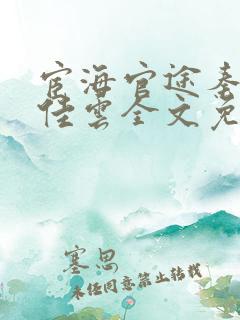 宦海官途秦
佳雲全文免
塞思
未经同意禁止转载